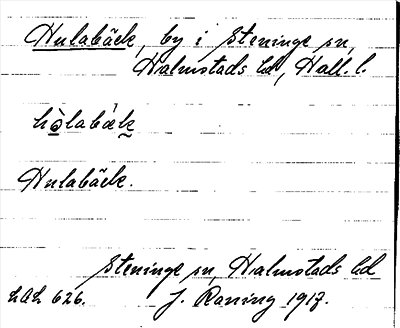 Hulabäck, by i Steninge sn,
Halmstads hd, Hall. l.
Hulabäck.
Steninge sn, Halmstads hd
626. J. Raning 1917.